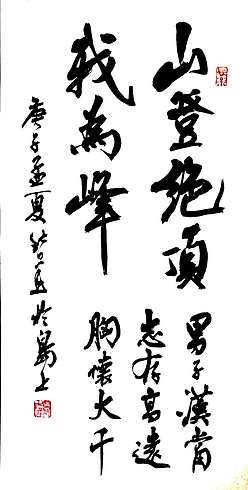 山登绝顶
我为峰
男子汉当
志存高远
胸怀大千
庚子孟夏